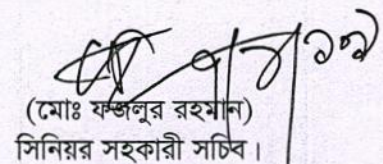 (মোঃ ফজলুর রহমান)
সিনিয়র সহকারী সচিব।